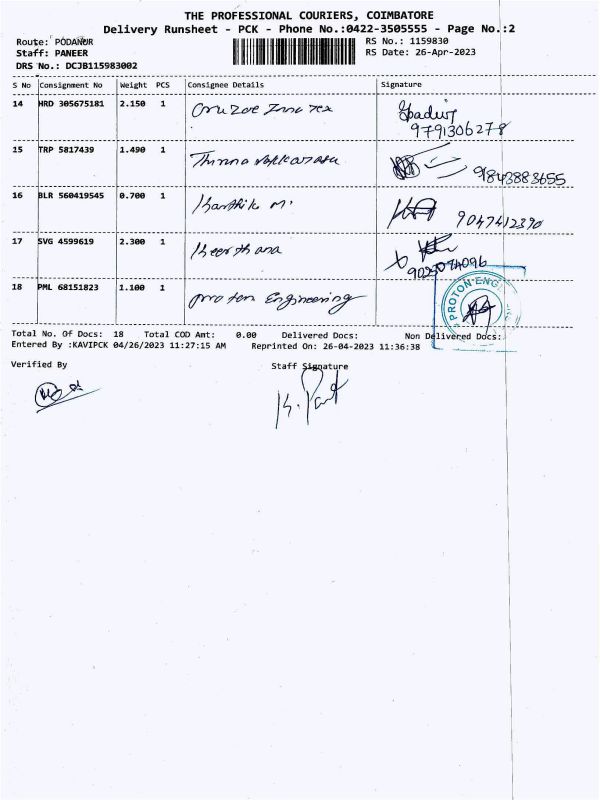 THE PROFESSIONAL COURIERS, COIMBATORE
Delivery Runsheet - PCK - Phone No.:0422-3505555 - Page No.:2
Route: PODANUR RS No.: 1159830
Staff: PANEER RS Date: 26-Apr-2023
DRS No.: DCJB115983002
S No Consignment No Weight PCS Consignee Details Signature
14 HRD 305675181 2.150 1
9791306278
15 TRP 5817439 1.490 1
9843883655
16 BLR 560419545 0.700 1 Karthik M. 9047412390
17 SVG 4599619 2.300 1 Keerthana
18 PML 68151823 1.100 1 Proton Engineering PROTON ENG
Total No. Of Docs: 18 Total COD Amt: 0.00 Delivered Docs: Non Delivered Docs:
Entered By :KAVIPCK 04/26/2023 11:27:15 AM Reprinted On: 26-04-2023 11:36:38
Verified By Staff Signature